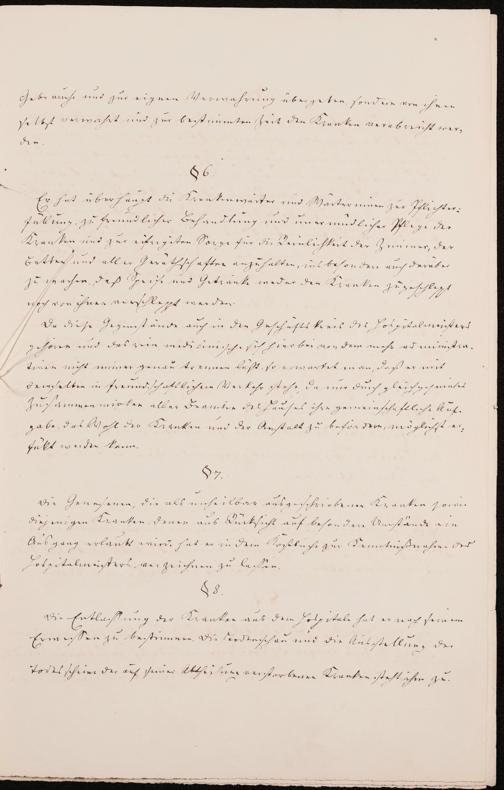 Gebrauche und zur eignen Verwahrung übergeben, sondern von ihnen
selbst verwahrt und zur bestimmten Zeit den Kranken verabreicht wer-
den.
§ 6.
Er hat überhaupt die Krankenwärter und Wärterinnen zur Pflichter-
füllung, zu freundlicher Behandlung und unermüdlicher Pflege der
Kranken und zur eifrigsten Sorge für die Reinlichkeit der Zimmer, der
Betten und aller Geräthschaften anzuhalten, insbesondere auch darüber
zu wachen, daß Speise und Getränke weder den Kranken zugeschleppt
noch von ihnen verschleppt werden.
Da diese Gegenstände auch in den Geschäftskreis des Hospitalmeisters
gehören und das rein medicinische sich hierbei von dem mehr administra-
tiven nicht immer genau trennen läßt, so erwartet man, daß er mit
demselben in freundschaftlichem Verkehr stehe, da nur durch gleichgesinntes
Zusammenwirken aller Beamten des Hauses ihre gemeinschaftliche Auf-
gabe, das Wohl der Kranken und der Anstalt zu befördern, möglichst er-
füllt werden kann.
§ 7.
Die Genesenen, die als unheilbar ausgeschriebenen Kranken sowie
diejenigen Kranken, denen aus Rücksicht auf besondere Umstände ein
Ausgang erlaubt wird, hat er in dem zur Kenntnißnahme des
Hospitalmeisters verzeichnen zu lassen.
§ 8.
Die Entlassung der Kranken aus dem Hospitale hat er nach seinem
Ermessen zu bestimmen. Die Leichenschau und die Ausstellung der
Todesscheine der auf seiner Abtheilung verstorbenen Kranken steht ihm zu.